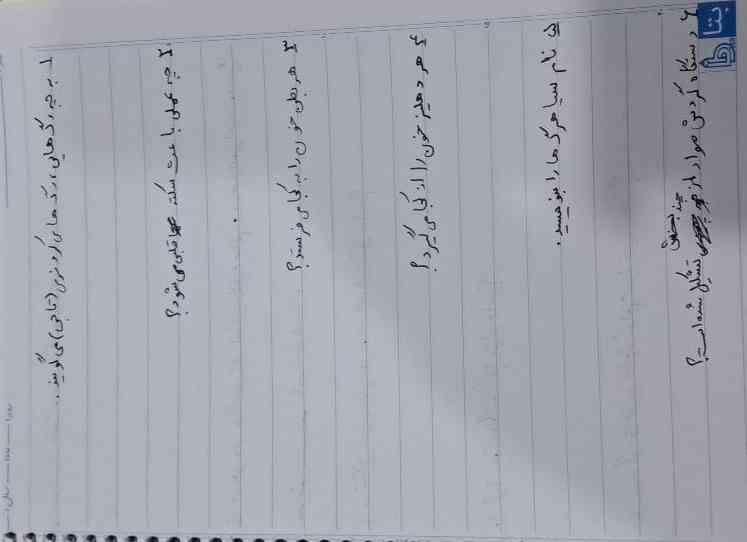 ۱ به چه رگ هایی، رگ های کرونری (تاجی) می گویند.
۲ چه عملی باعث سکته قلبی می شود؟
۳ هر بطن خون را به کجا می فرستد؟
۴ هر دهلیز خون را از کجا می گیرد؟
۵ نام سیاهرگ ها را بنویسید.
۶ دستگاه گردش مواد از چند بخش تشکیل شده است؟